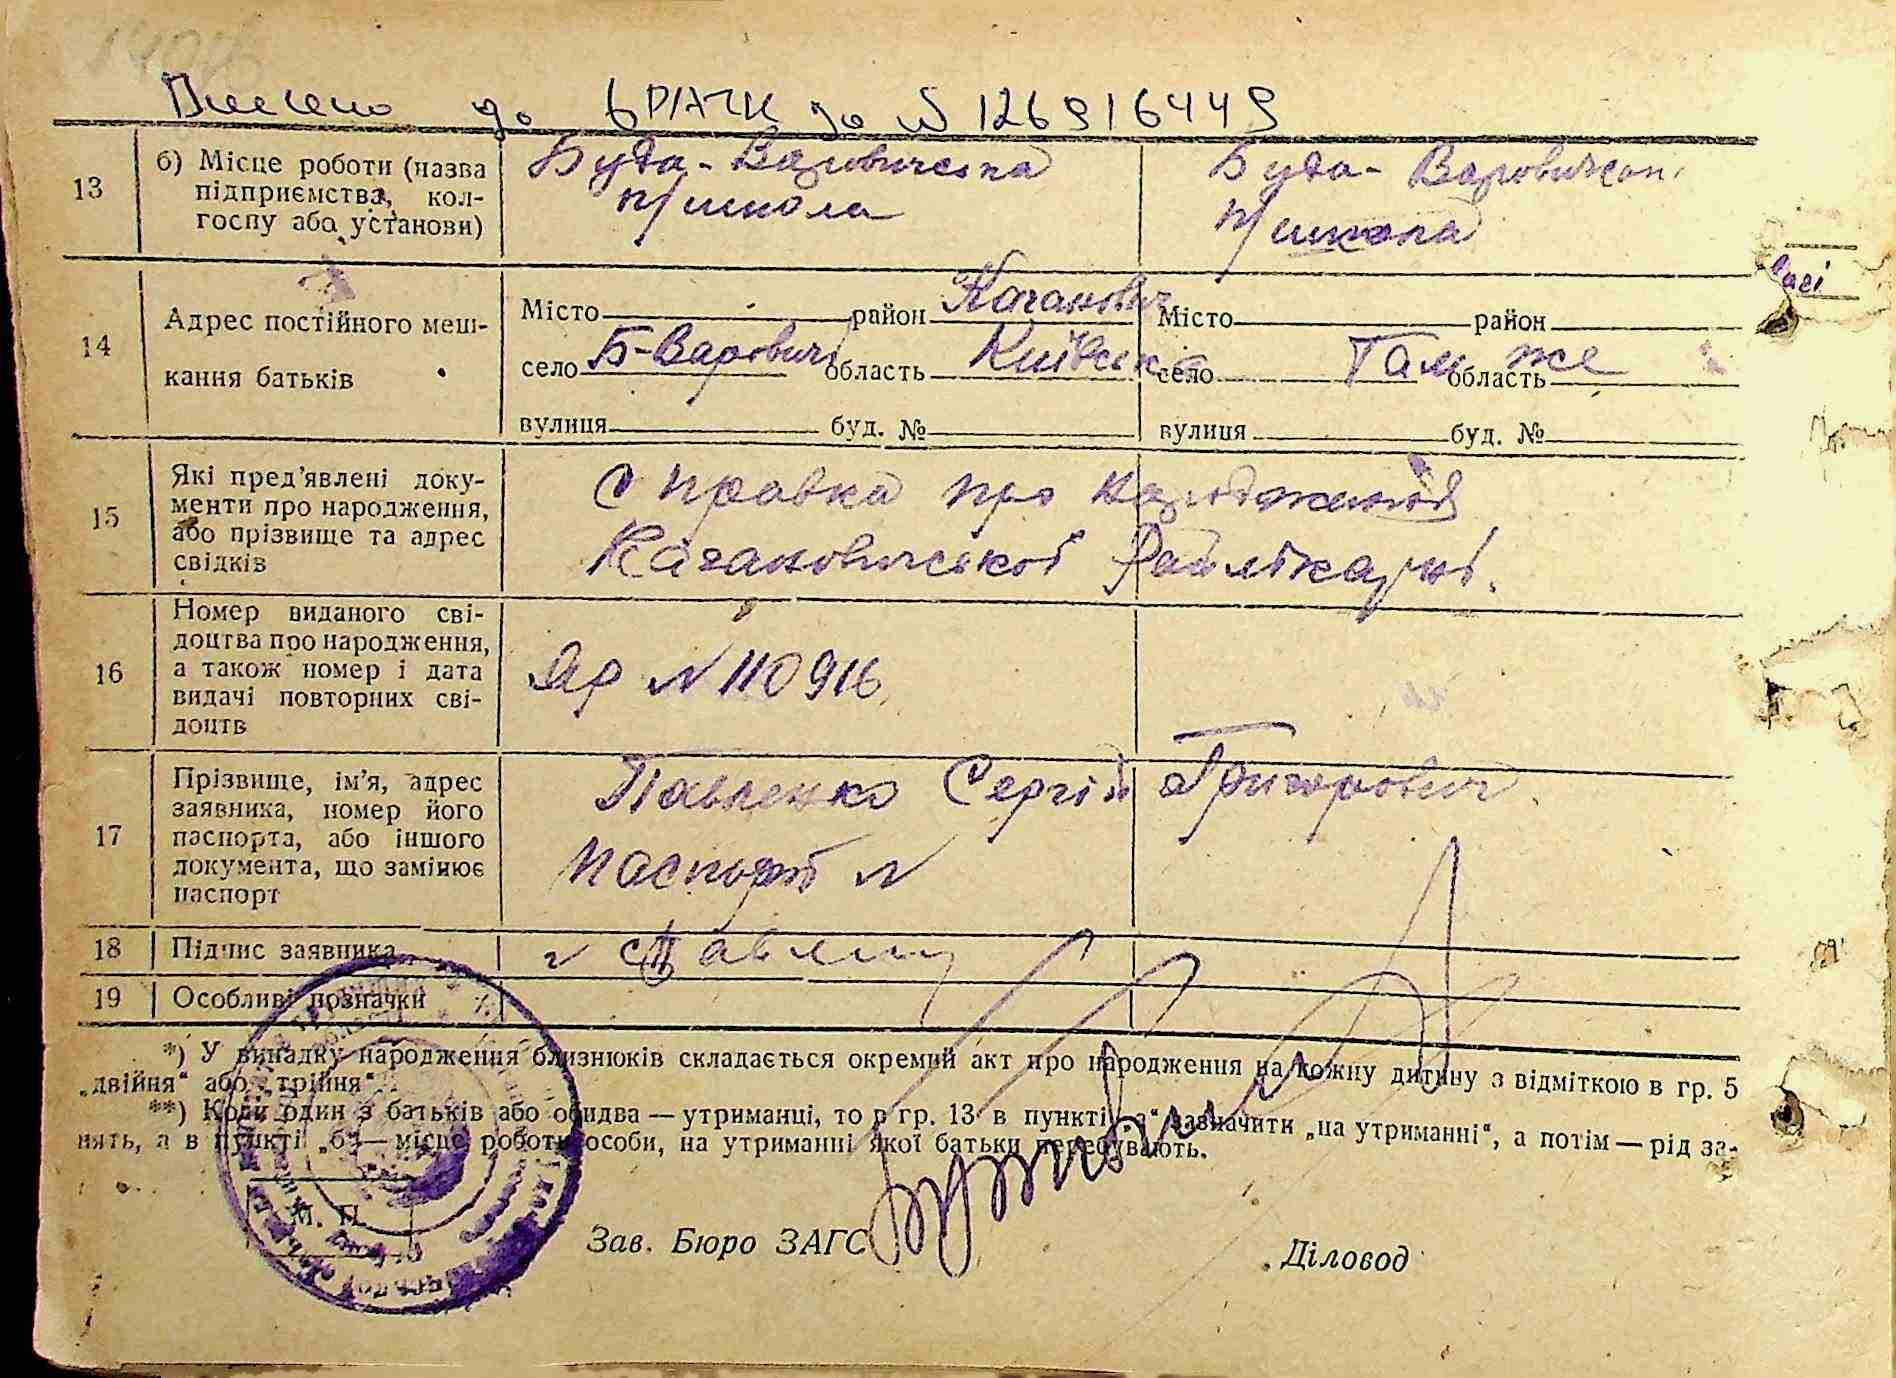 Внесено до ДРАЦС за № 126916449
13
б) Місце роботи (назва підприємства, колгоспу або установи)
Буда-Варовичська п/школа
Буда-Варовичськ. п/школа
14
Адрес постійного мешкання батьків
Місто район Каганович
село Б-Варовичі область Київськ
вулиця буд. №
Місто район
село Там же область
вулиця буд. №
15
Які пред'явлені документи про народження, або прізвище та адрес свідків
Справка про народження
Кагановичської Райлікарні.
16
Номер виданого свідоцтва про народження, а також номер і дата видачі повторних свідоцтв
№ 110916
17
Прізвище, ім'я, адрес заявника, номер його паспорта, або іншого документа, що замінює паспорт
Павленко Сергій Григорович
паспорт №
18
Підпис заявника
19
Особливі позначки
*) У випадку народження близнюків складається окремий акт про народження на кожну дитину з відміткою в гр. 5
„двійня“ або „трійня“.
**) Коли один з батьків або обидва — утриманці, то в гр. 13 в пункті „а“ зазначити „на утриманні“, а потім — рід за-
нять, а в пункті „б“ — місце роботи особи, на утриманні якої батьки перебувають.
М. П.
Зав. Бюро ЗАГС
Діловод